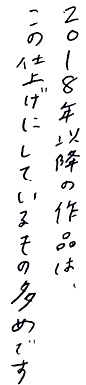 2018年以降の作品は、
この仕上げにしているもの多めです